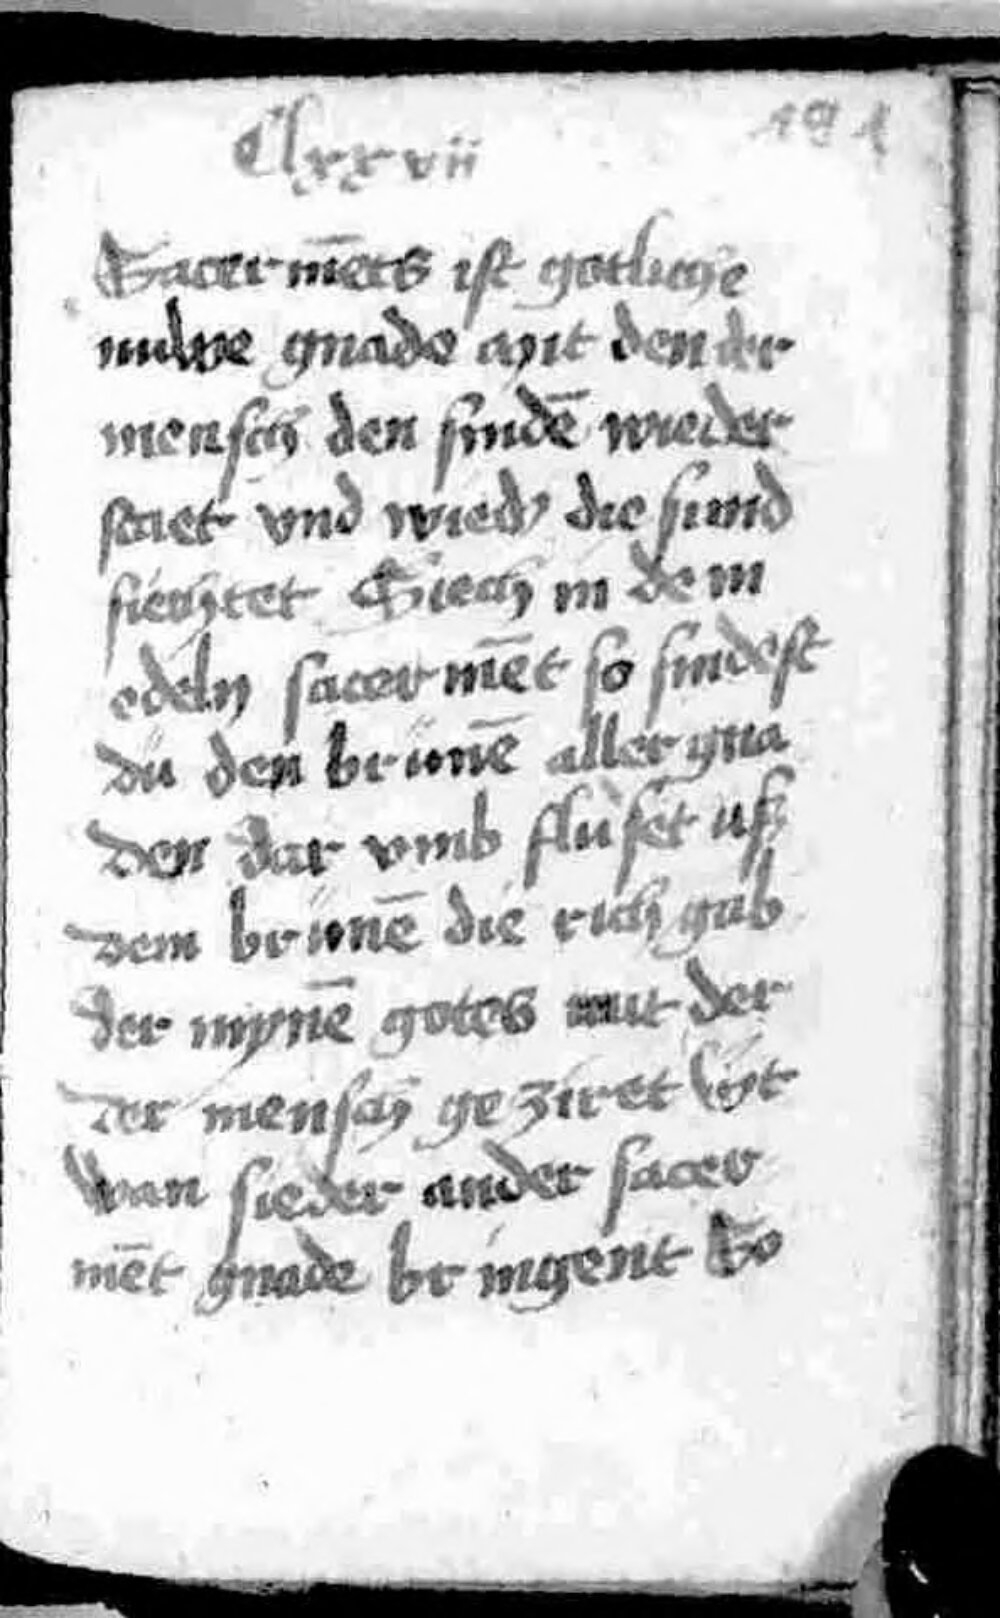 Clxxvii 191
Sacermēts ist gotliche
milde gnade mit den der
mensch den sindē wieder
stiet vnd wied' die sund
siechtet Siech in dem
edeln sacermēt so findest
dü den brünē aller gna
den dar vmb flüset uß
dem brünē die rich gab
der mynnē gotes mit der
der mensch geziret wt
wan sieder ander sacer
mēt gnade bringent So